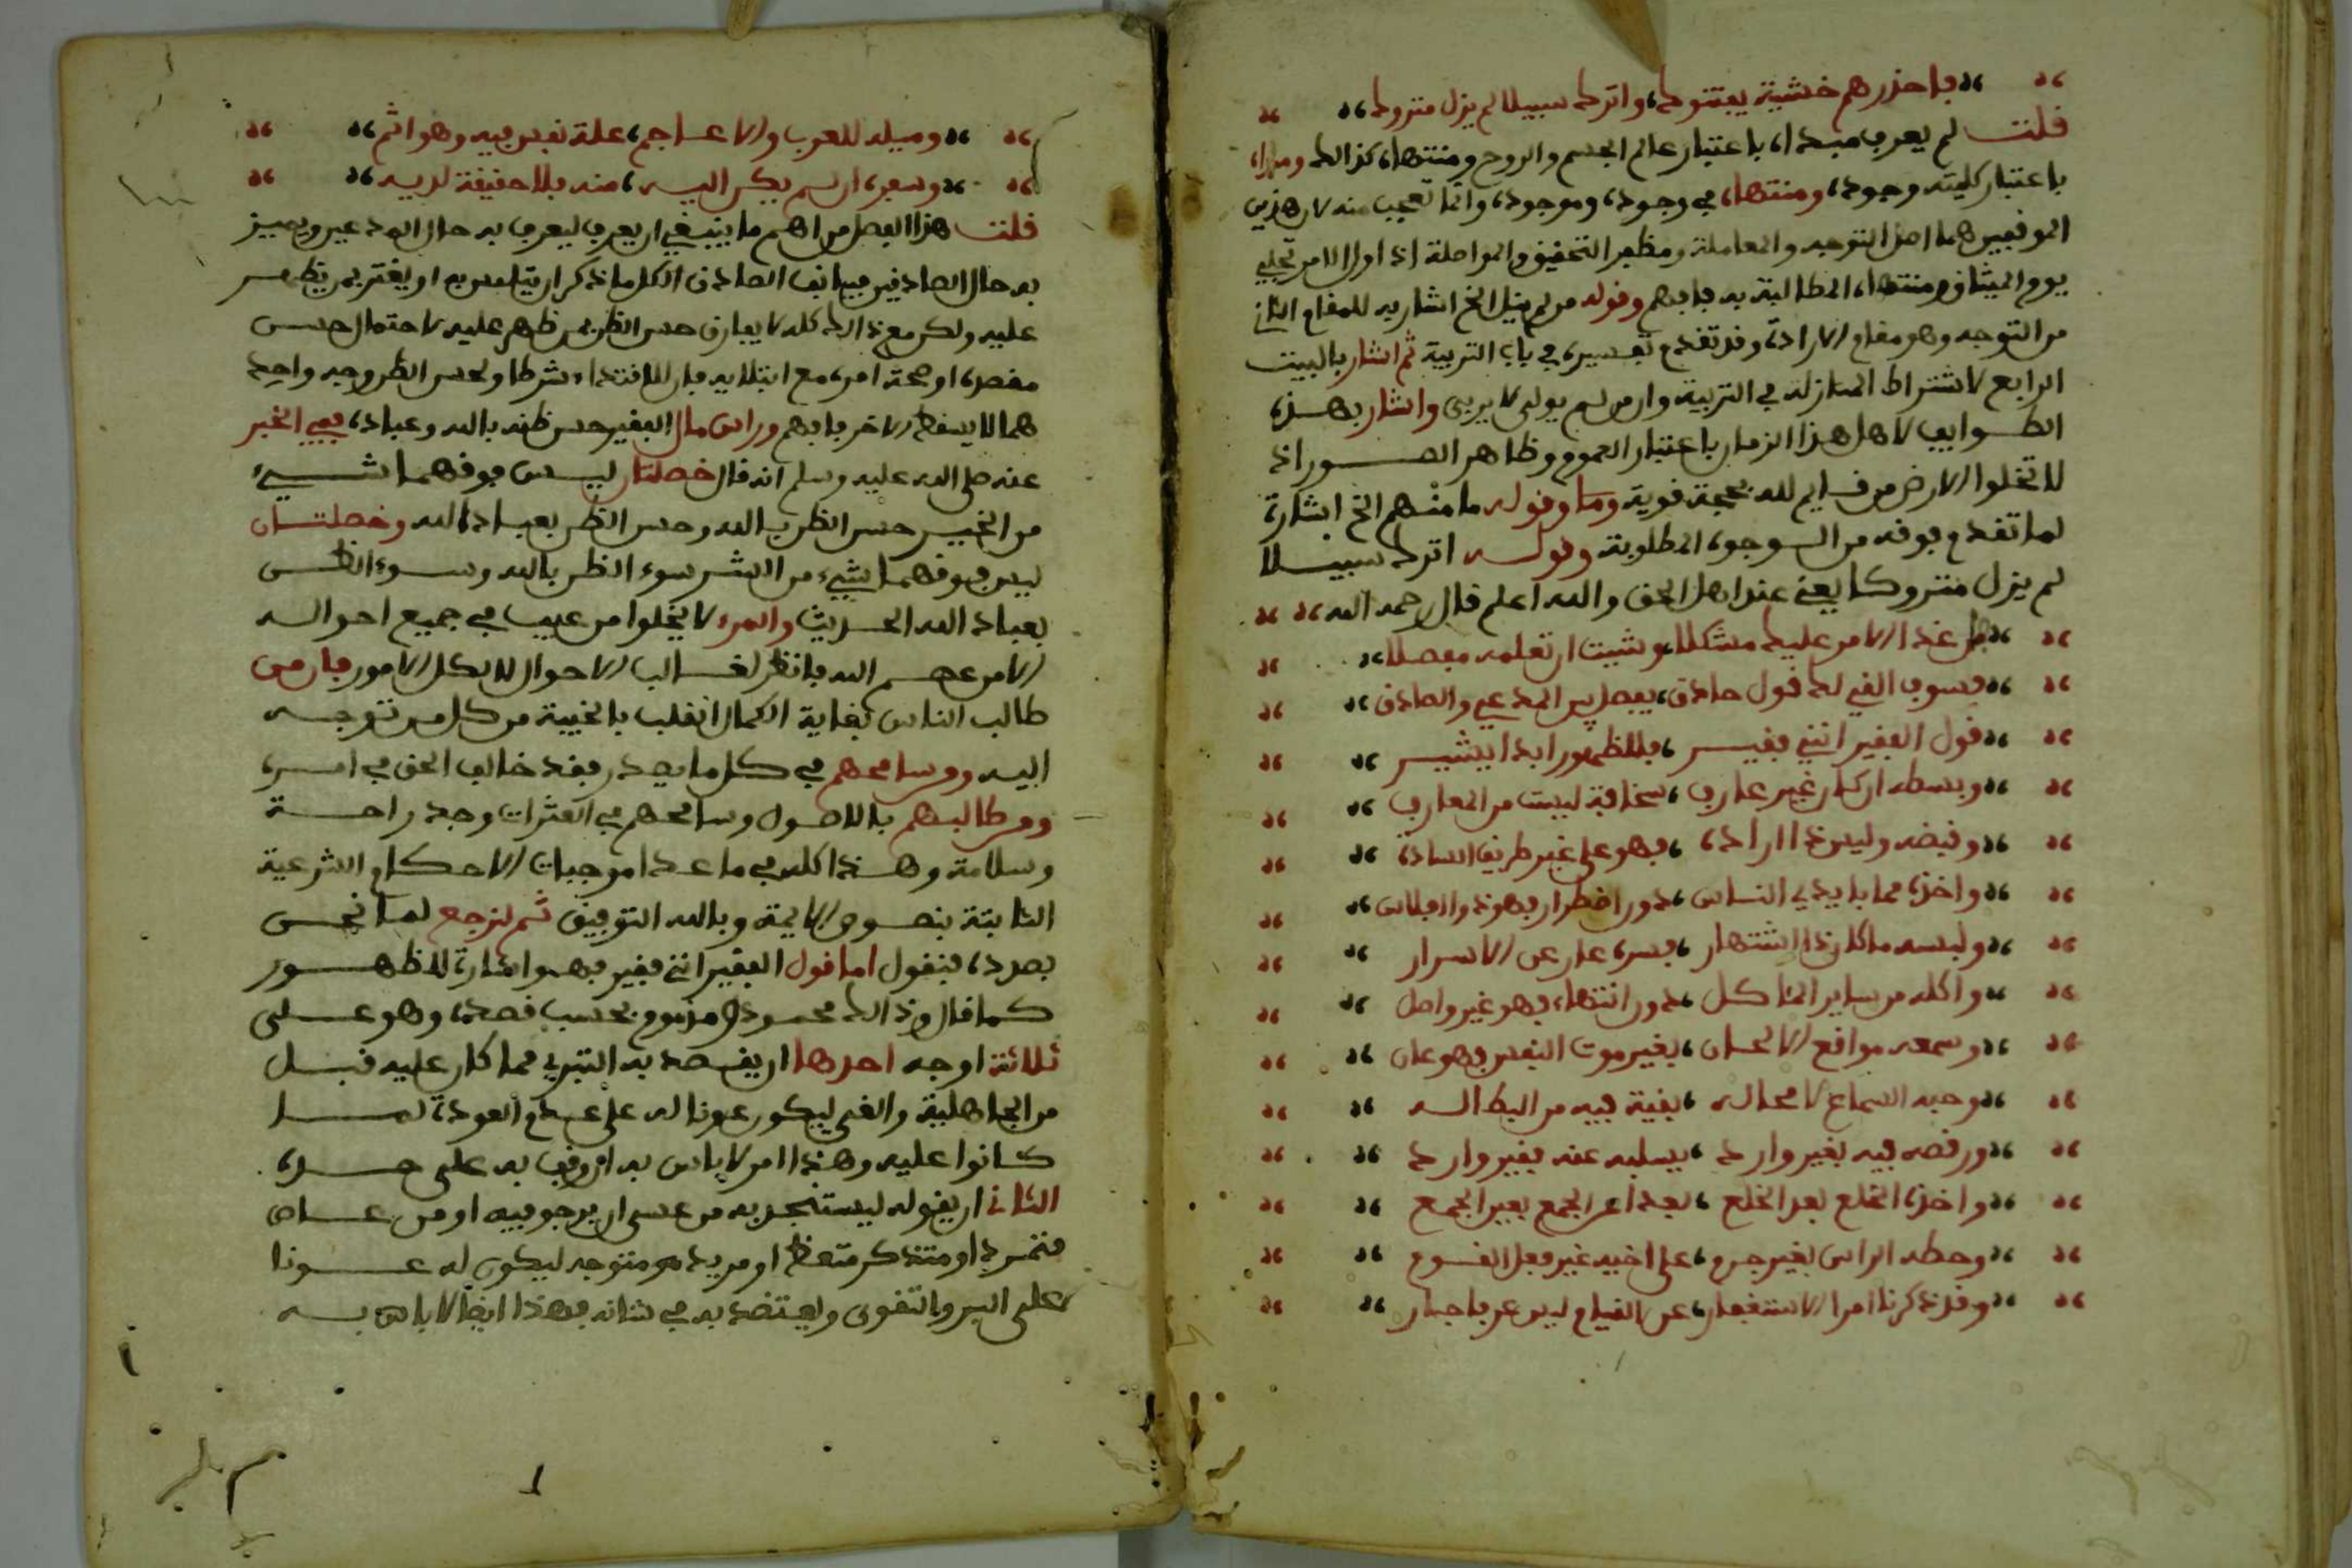 فاحذرهم خشية يفتنوك، واترك سبيلا لم يزل متروكا
قلت لم يعرف مبداه باعتبار عالم الجسم والروح ومنتهاه كذالك ومبداه
باعتبار كليته وجوده، ومنتهاه في وجوده، وموجوده، وانما تعجب منه لان هذين
الموقفين هما اصل التوجه والمعاملة ومظهر التحقيق والمواصلة اذ اول الامر تجلي
يوم الميثاق ومنتهاه المطالبة به فافهم وقوله من لم ينل الخ اشار به للمقام الثاني
من التوجه وهو مقام الارادة، وقد تقدم تفسيره في باب التربية ثم اشار بالبيت
الرابع لاشتراط المنازلة في التربية وان من لم يولى لا يربى واشار بهذه
الطوايف لاهل هذا الزمان باعتبار العموم وظاهر الصور اذ
لا تخلوا الارض من قايم لله بحجة قوية وقوله ما منهم الخ اشارة
لما تقدم فوقه من الوجوه المطلوبة وقوله اترك سبيلا
لم يزل متروكا يعني عند اهل الحق والله اعلم قال رحمه الله
هل غدا الامر عليك مشكلا، وشيت ان تعلمه مفصلا
فسوف القي لك قول حاذق، يفصل بين المدعي والصادق
قول الفقير انني فقير، فللظهور ابدا يشير
وبسطه ان كان غير عارف، سخافة ليست من المعارف
وقبضه وليس ذا اراده، فهو على غير طريق الساده
واخذه مما بايدي الناس، دون اضطرار فهو ذو افلاس
ولبسه ما كان ذا اشتهار، فسره عار عن الاسرار
واكله من ساير المئاكل، دون انتهاء فهو غير واصل
وسمعه مواقع الالحان، بغير موت النفس فهو عان
وحبه السماع لا محاله، بقية فيه من البطاله
ورقصه فيه بغير وارد، يسلبه عنه بغير وارد
واخذه الخلع بعد الخلع، بعدا عن الجمع بعين الجمع
وحطه الراس بغير جرم، على اخيه غير فعل القوم
وقد ذكرنا امر الاستغفار، عن القيام لير عرفا جار
وميله للعرب والاعاجم، علة نفس فيه وهو اثم
وسفره ان لم يكن اليه، منه بلا حقيقة لديه
قلت هذا الفصل من اهم ما ينبغي ان يعرف ليعرف به حال المدعين ويميز
به حال الصادقين فيهانف الصادق الكل ما ذكر ان يتلبس به او يغتر بمن يظهر
عليه ولكن مع ذالك كله لا يفارق حسن الظن بمن ظهر عليه لاحتمال حسن
مقصده او صحة امره مع ابتلايه فان للاقتداء شرطا ولحسن الظن وجه واحد
هما لا يسقط الاخر فافهم وراس مال الفقير حسن ظنه بالله وعباده، ففي الخبر
عنه صلى الله عليه وسلم انه قال خصلتان ليس فوقهما شيء
من الخير حسن الظن بالله وحسن الظن بعباد الله وخصلتان
ليس فوقهما شيء من الشر سوء الظن بالله وسوء الظن
بعباد الله الحديث والمرء لا يخلوا من عيب في جميع احواله
الا من عصم الله فانظر لغالب الاحوال لا بكل الامور فان من
طالب الناس بغاية الكمال انقلب بالخيبة من كل من توجه
اليه ومن سامحهم في كل ما يصدر فقد خالف الحق في امره
ومن طالبهم بالاصول وسامحهم في العثرات وجد راحة
وسلامة وهذا كله في ما عدا موجبات الاحكام الشرعية
الثابتة بنصوص الايمة وبالله التوفيق ثم لنرجع لما نحن
بصدده فنقول اما قول الفقير انني فقير فهو اشارة للظهور
كما قال وذالك محمود او مذموم بحسب قصده وهو على
ثلاثة اوجه احدها ان يقصد به التبري مما كان عليه قبل
من الجاهلية والغي ليكون عونا له على عدم العودة لما
كانوا عليه وهذا امر لا باس به ان وقف به على حده
الثاني ان يقوله ليستنجد به من عسى ان يرجو فيه او من عاص
متمرد او متذكر متعظ او مريد هو متوجه ليكون له عونا
على البر والتقوى ويعتضد به في شانه فهذا ايضا لا باس به